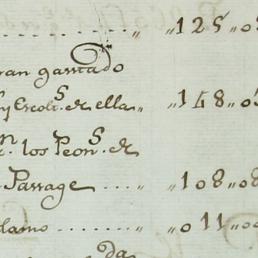 .... „ „125 „0
ran gastado
y Ercol.s de ella „ „148 „0
n. los Peon.s de
Passage .... „ „108 „8
lamo ........ „ „011 „0
da